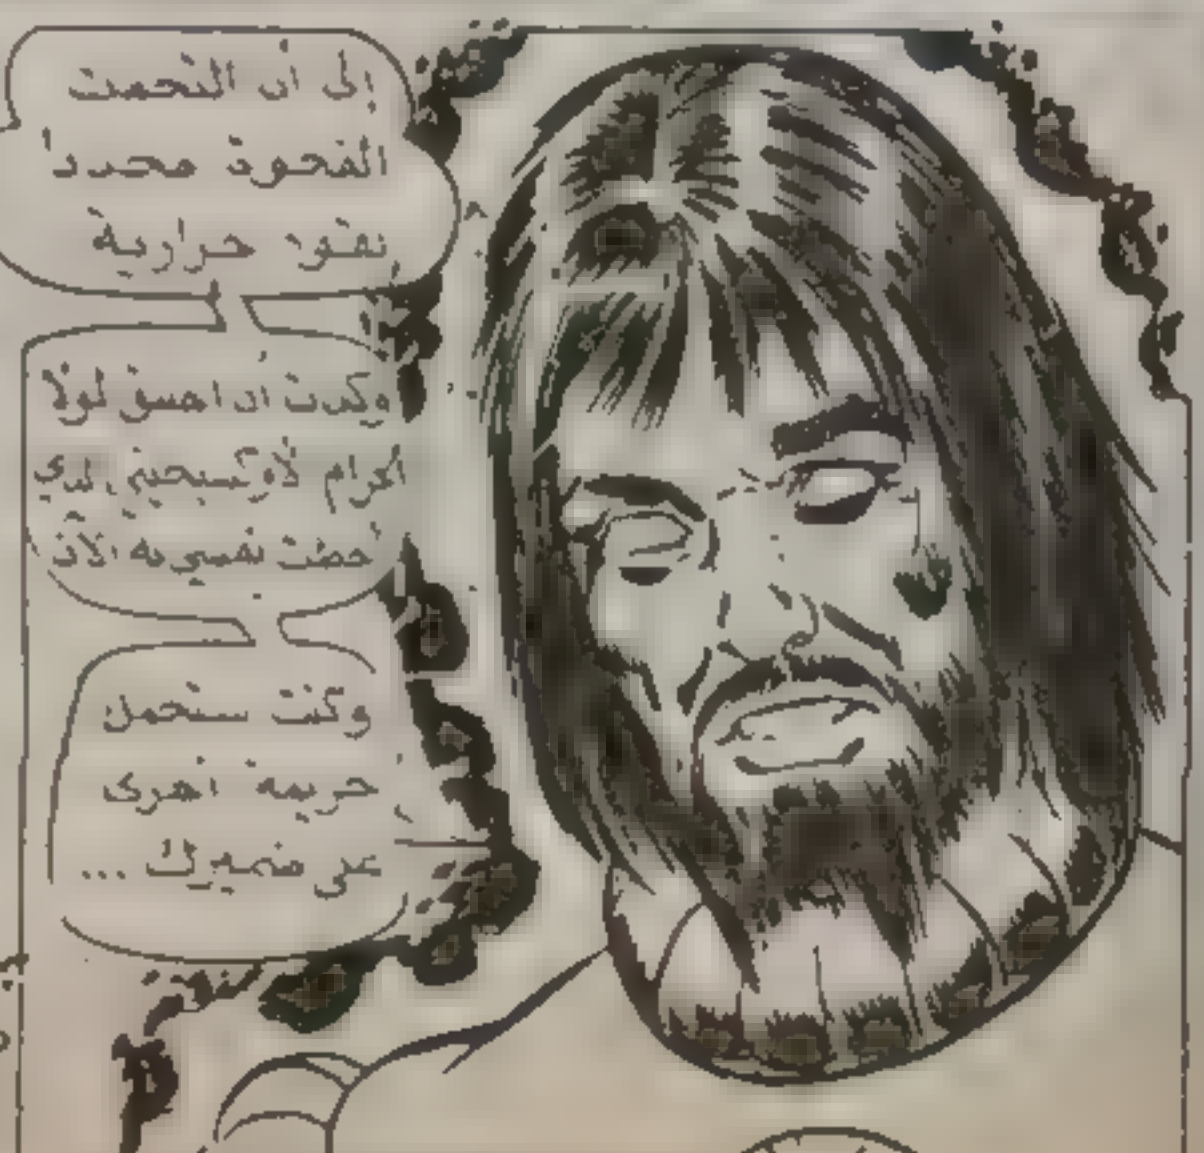 إلى أن التحمت
الفجوة مجددا
بفتور حرارية
وكدت أن أختنق لولا
الأوكسيجيني الذي
نفسي به الآن
وكنت ستحمل
جريمة أخرى
على ضميرك ...